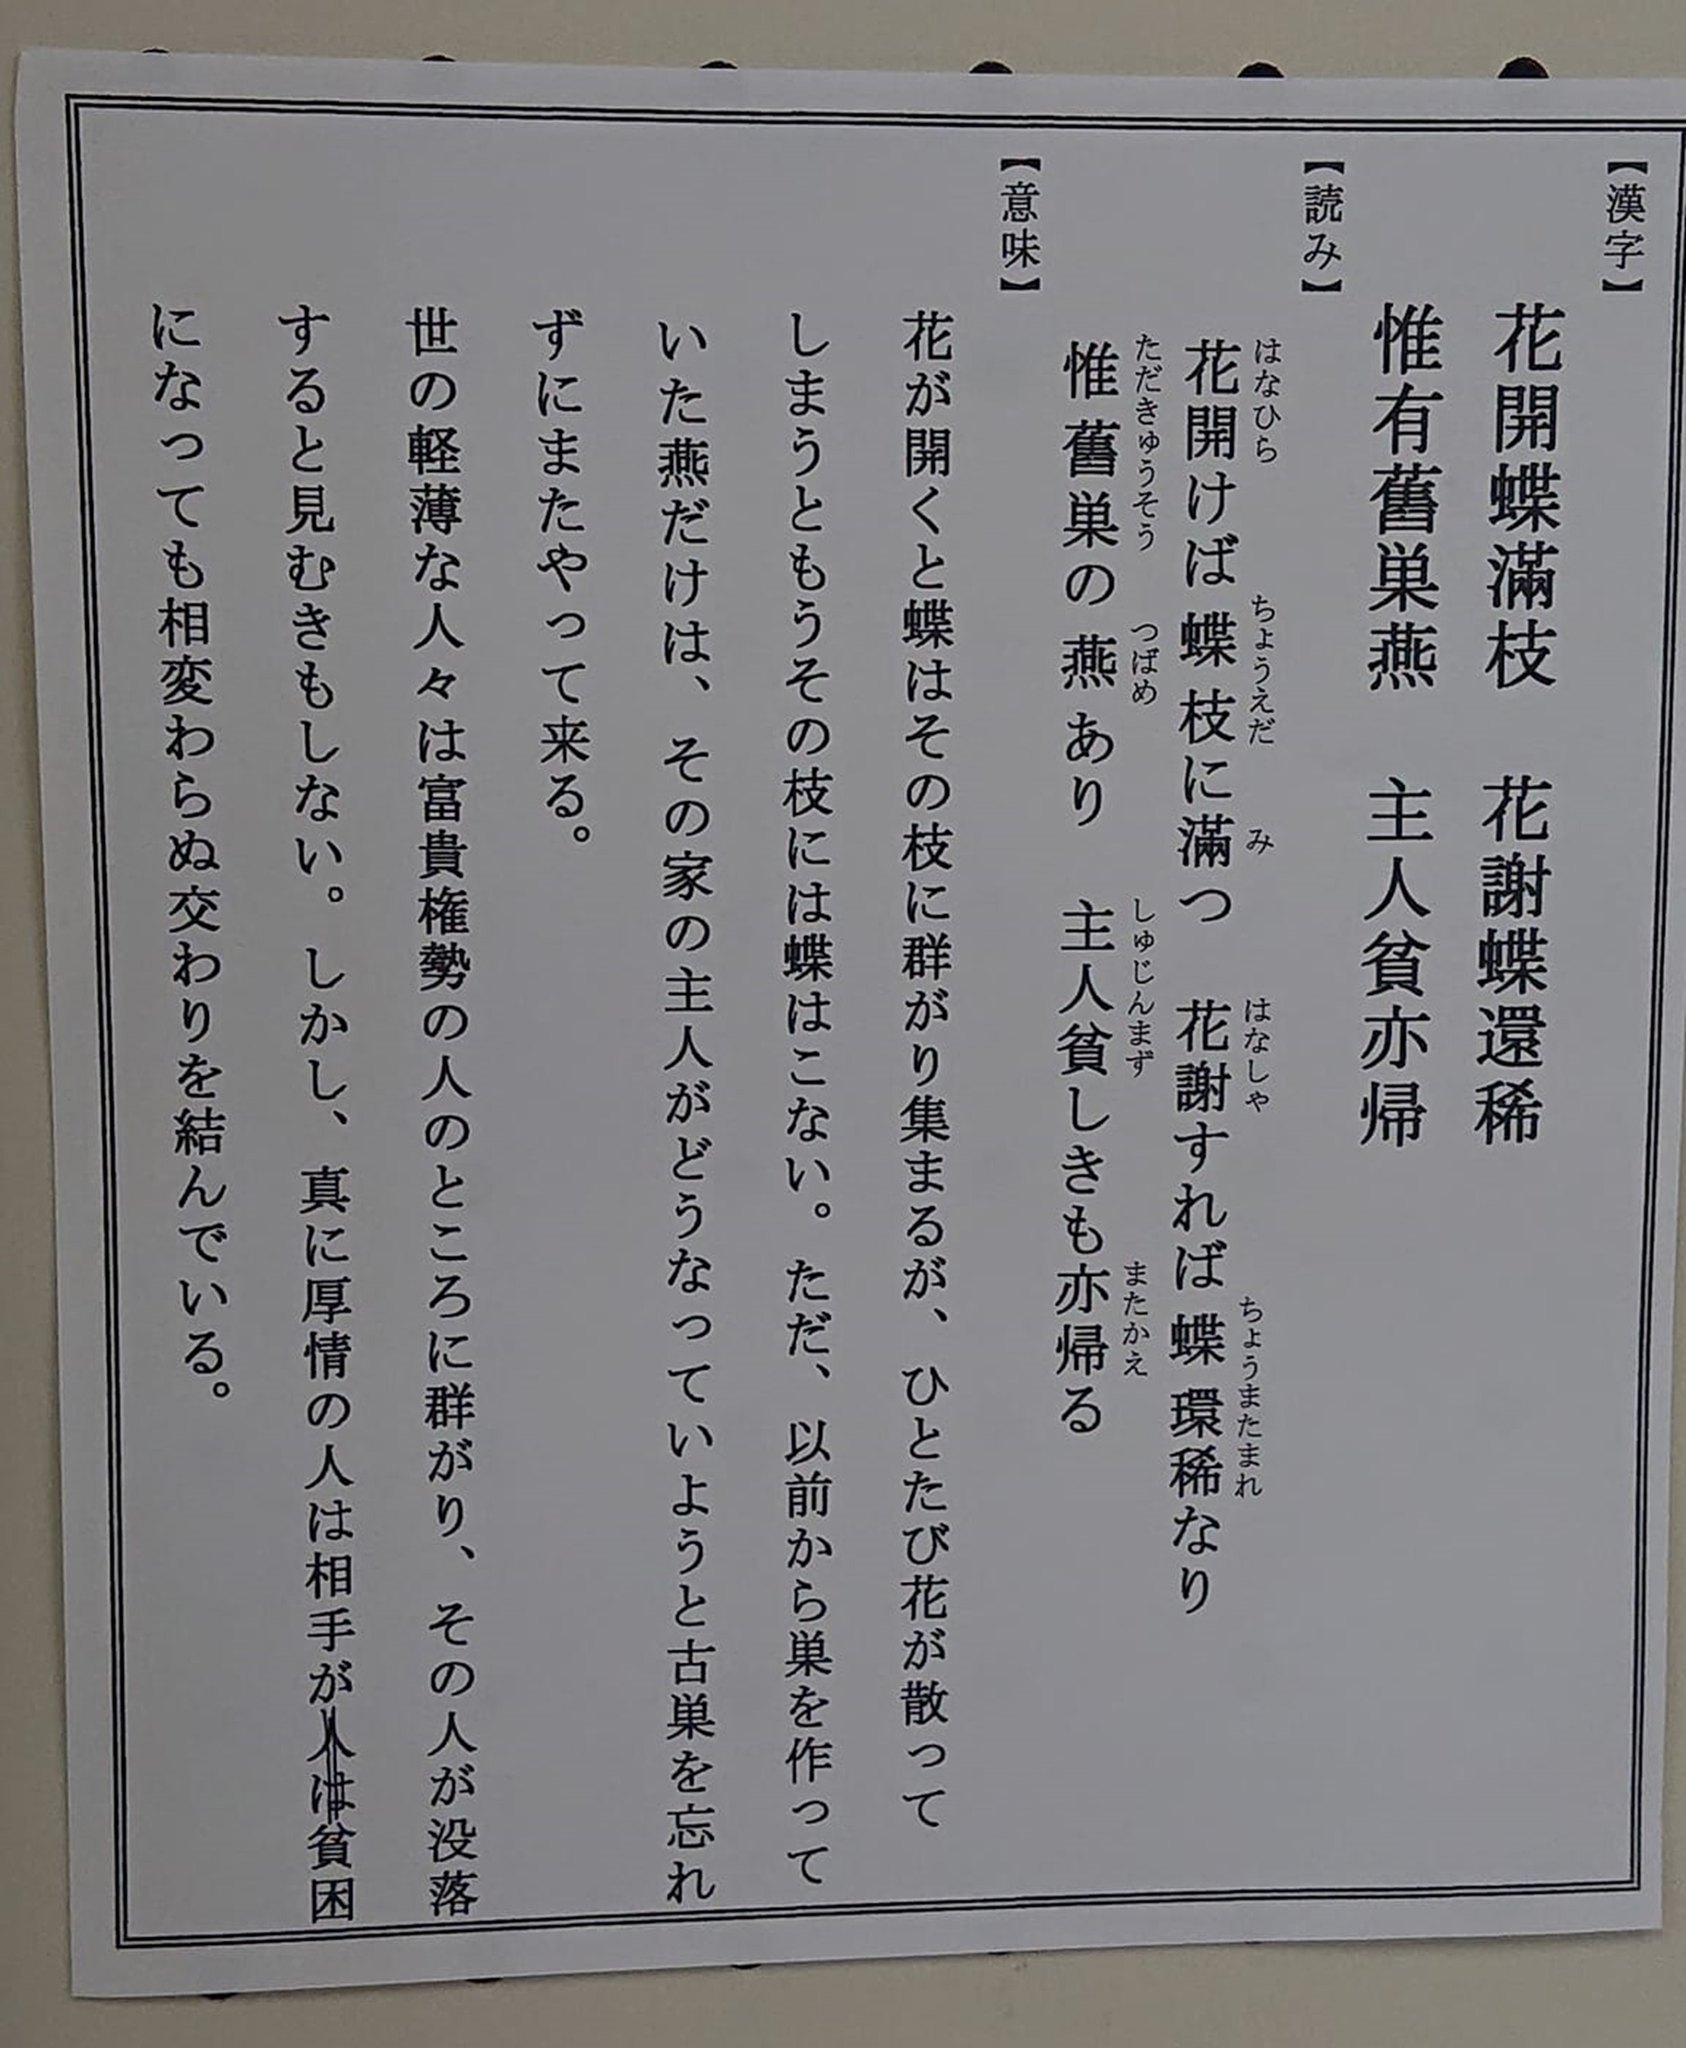 【漢字】
花開蝶滿枝　花謝蝶還稀
惟有舊巣燕　主人貧亦帰
【読み】
はなひら　ちょうえだ　み　はなしゃ　ちょうまたまれ
花開けば蝶枝に滿つ　花謝すれば蝶環稀なり
ただきゅうそう　つばめ　しゅじんまず　またかえ
惟舊巣の燕あり　主人貧しきも亦帰る
【意味】
花が開くと蝶はその枝に群がり集まるが、ひとたび花が散って
しまうともうその枝には蝶はこない。ただ、以前から巣を作って
いた燕だけは、その家の主人がどうなっていようと古巣を忘れ
ずにまたやって来る。
世の軽薄な人々は富貴権勢の人のところに群がり、その人が没落
すると見むきもしない。しかし、真に厚情の人は相手が人は貧困
になっても相変わらぬ交わりを結んでいる。